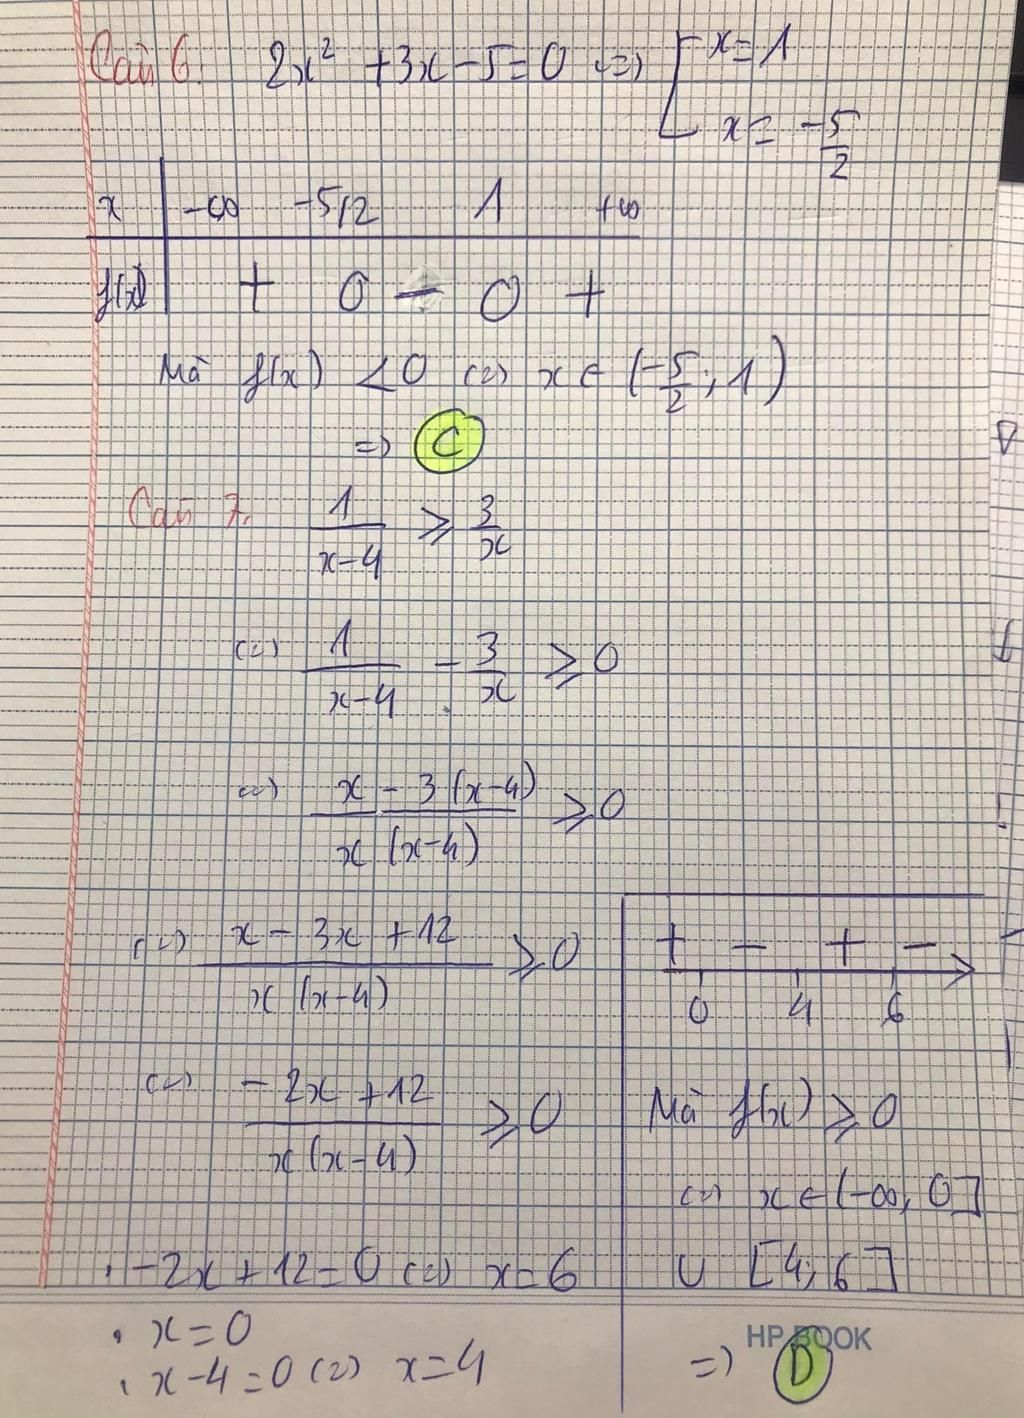 Câu 6: 2x² + 3x - 5 = 0 <=> [ x = 1
x = -5/2
x | -∞ -5/2 1 +∞
f(x) | + 0 - 0 +
Mà f(x) < 0 <=> x ∈ (-5/2; 1)
=> C
Câu 7: 1/(x-4) ≥ 3/x
<=> 1/(x-4) - 3/x ≥ 0
<=> (x - 3(x-4))/(x(x-4)) ≥ 0
<=> (x - 3x + 12)/(x(x-4)) ≥ 0
<=> (-2x + 12)/(x(x-4)) ≥ 0
. -2x + 12 = 0 <=> x = 6
. x = 0
. x - 4 = 0 <=> x = 4
+ - + -
0 4 6
Mà f(x) ≥ 0
<=> x ∈ (-∞, 0]
∪ [4; 6]
HP BOOK
=> D